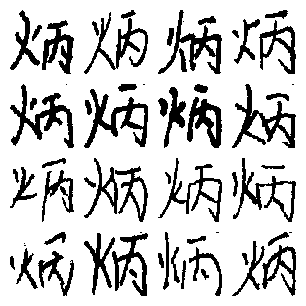 炳炳炳炳
炳炳炳炳
炳炳炳炳
炳炳炳炳